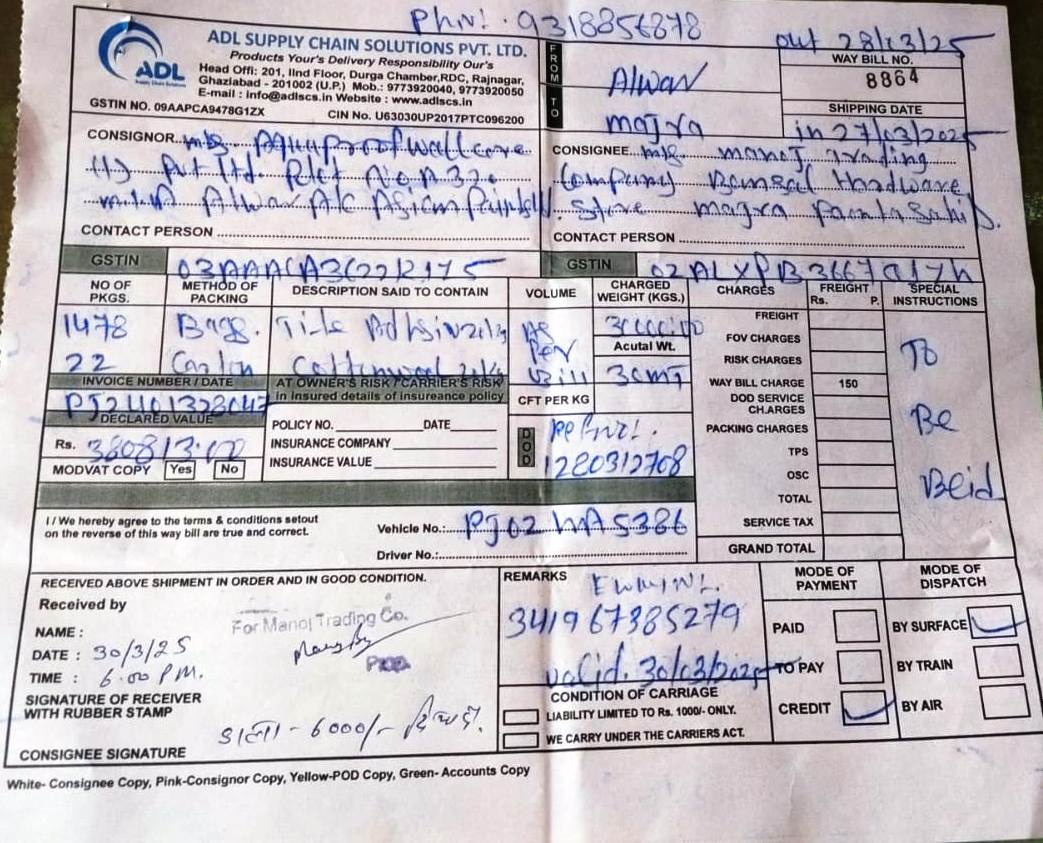 Phn! . 9318856878
ADL
Supply Chain Solutions
ADL SUPPLY CHAIN SOLUTIONS PVT. LTD.
Products Your's Delivery Responsibility Our's
Head Offi: 201, IInd Floor, Durga Chamber,RDC, Rajnagar,
Ghaziabad - 201002 (U.P.) Mob.: 9773920040, 9773920050
E-mail : info@adlscs.in Website : www.adlscs.in
GSTIN NO. 09AAPCA9478G1ZX CIN No. U63030UP2017PTC096200
FROM Alwar
TO majra
out 28/03/25
WAY BILL NO.
8864
SHIPPING DATE
in 27/03/2025
CONSIGNOR
Pvt ltd. Plot No A 320
Alwar A/c Asian Paints
CONTACT PERSON
CONSIGNEE manoj Trading
Company Bansal Hardware
Store majra Paonta Sahib.
CONTACT PERSON
GSTIN
GSTIN 02ALXPB3667
NO OF PKGS. METHOD OF PACKING DESCRIPTION SAID TO CONTAIN VOLUME CHARGED WEIGHT (KGS.) CHARGES FREIGHT Rs. P. SPECIAL INSTRUCTIONS
1478 Bags. Tile
22
As Per Bill
Acutal Wt.
30MT
CFT PER KG
INVOICE NUMBER / DATE
DECLARED VALUE
Rs.
MODVAT COPY Yes No
AT OWNER'S RISK / CARRIER'S RISK
in insured details of insureance policy
POLICY NO. DATE
INSURANCE COMPANY
INSURANCE VALUE
DOD
1280312708
FREIGHT
FOV CHARGES
RISK CHARGES
WAY BILL CHARGE 150
DOD SERVICE CH.ARGES
PACKING CHARGES
TPS
OSC
TOTAL
SERVICE TAX
GRAND TOTAL
To
Be
Beid
I / We hereby agree to the terms & conditions setout
on the reverse of this way bill are true and correct.
Vehicle No.:
Driver No.:
RECEIVED ABOVE SHIPMENT IN ORDER AND IN GOOD CONDITION.
Received by
For Manoj Trading Co.
NAME :
DATE : 30/3/25
TIME : 6.00 P.M.
SIGNATURE OF RECEIVER
WITH RUBBER STAMP
6000/-
CONSIGNEE SIGNATURE
REMARKS
341967385279
valid. 30/03/2025
CONDITION OF CARRIAGE
LIABILITY LIMITED TO Rs. 1000/- ONLY.
WE CARRY UNDER THE CARRIERS ACT.
MODE OF PAYMENT
PAID
TO PAY
CREDIT
MODE OF DISPATCH
BY SURFACE
BY TRAIN
BY AIR
White- Consignee Copy, Pink-Consignor Copy, Yellow-POD Copy, Green- Accounts Copy